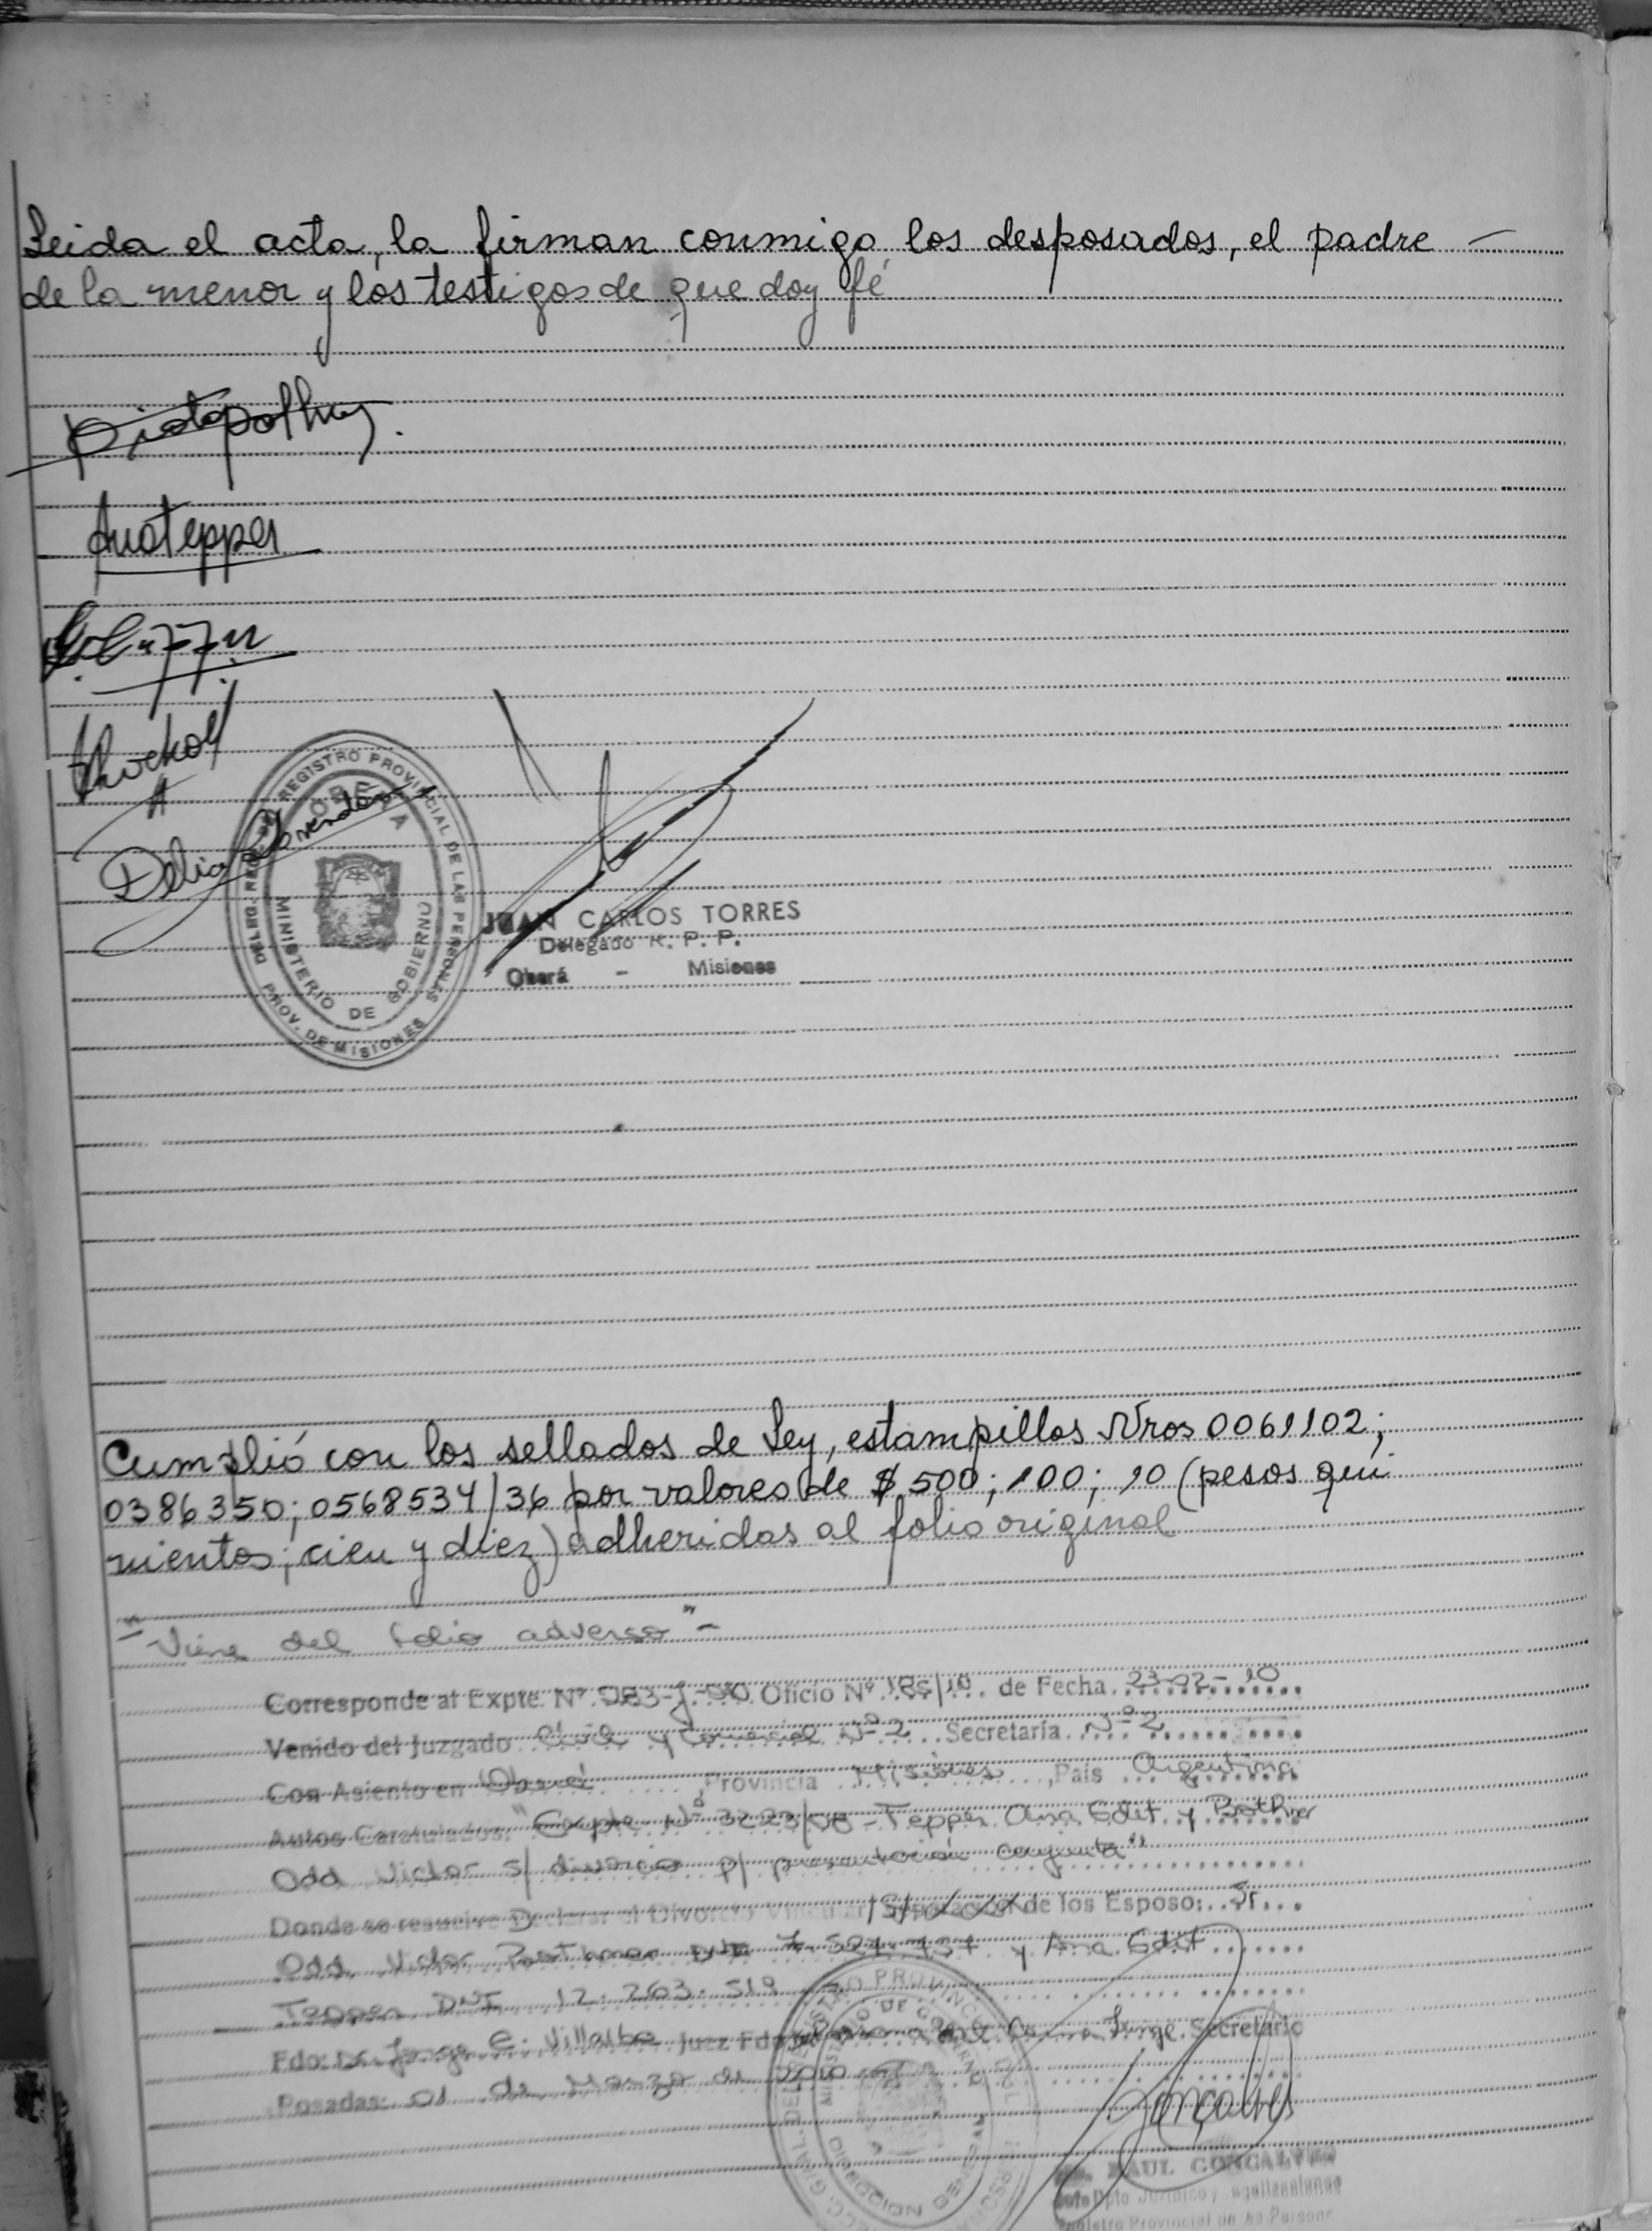 Leida el acta, la firman conmigo los desposados, el padre —
de la menor y los testigos de que doy fé
Ana Tepper
Delia
REGISTRO PROVINCIAL DE LAS PERSONAS
OBERA
MINISTERIO DE GOBIERNO
PROV. DE MISIONES
JUAN CARLOS TORRES
Delegado R. P. P.
Oberá - Misiones
Cumplió con los sellados de Ley, estampillas Nros 0061102;
0386350; 0568534/36 por valores de $ 500; 100; 10 (pesos qui
nientos; cien y diez) adheridas al folio original
-"Viene del folio adverso"-
Corresponde al Expte. Nº Oficio Nº 185/10 de Fecha 23-02-10
Venido del Juzgado Civil y Comercial Nº 2 Secretaría Nº 2
Con Asiento en Oberá, Provincia Misiones, País Argentina
Autos Caratulados: "Expte Nº 3223/08 - Tepper Ana Edit y
Odd Victor s/ divorcio p/ presentación conjunta"
Donde se resuelve Declarar el Divorcio Vincular / de los Esposo: Sr.
Odd Victor DNI y Ana Edit
Tepper DNI 12.263.519
Fdo: Dr. Jorge E. Villalba Juez Fdo Jorge Secretario
Posadas: 01 de Marzo de 2010
RAUL GONCALVES
Dpto Jurídico y
Registro Provincial de las Personas